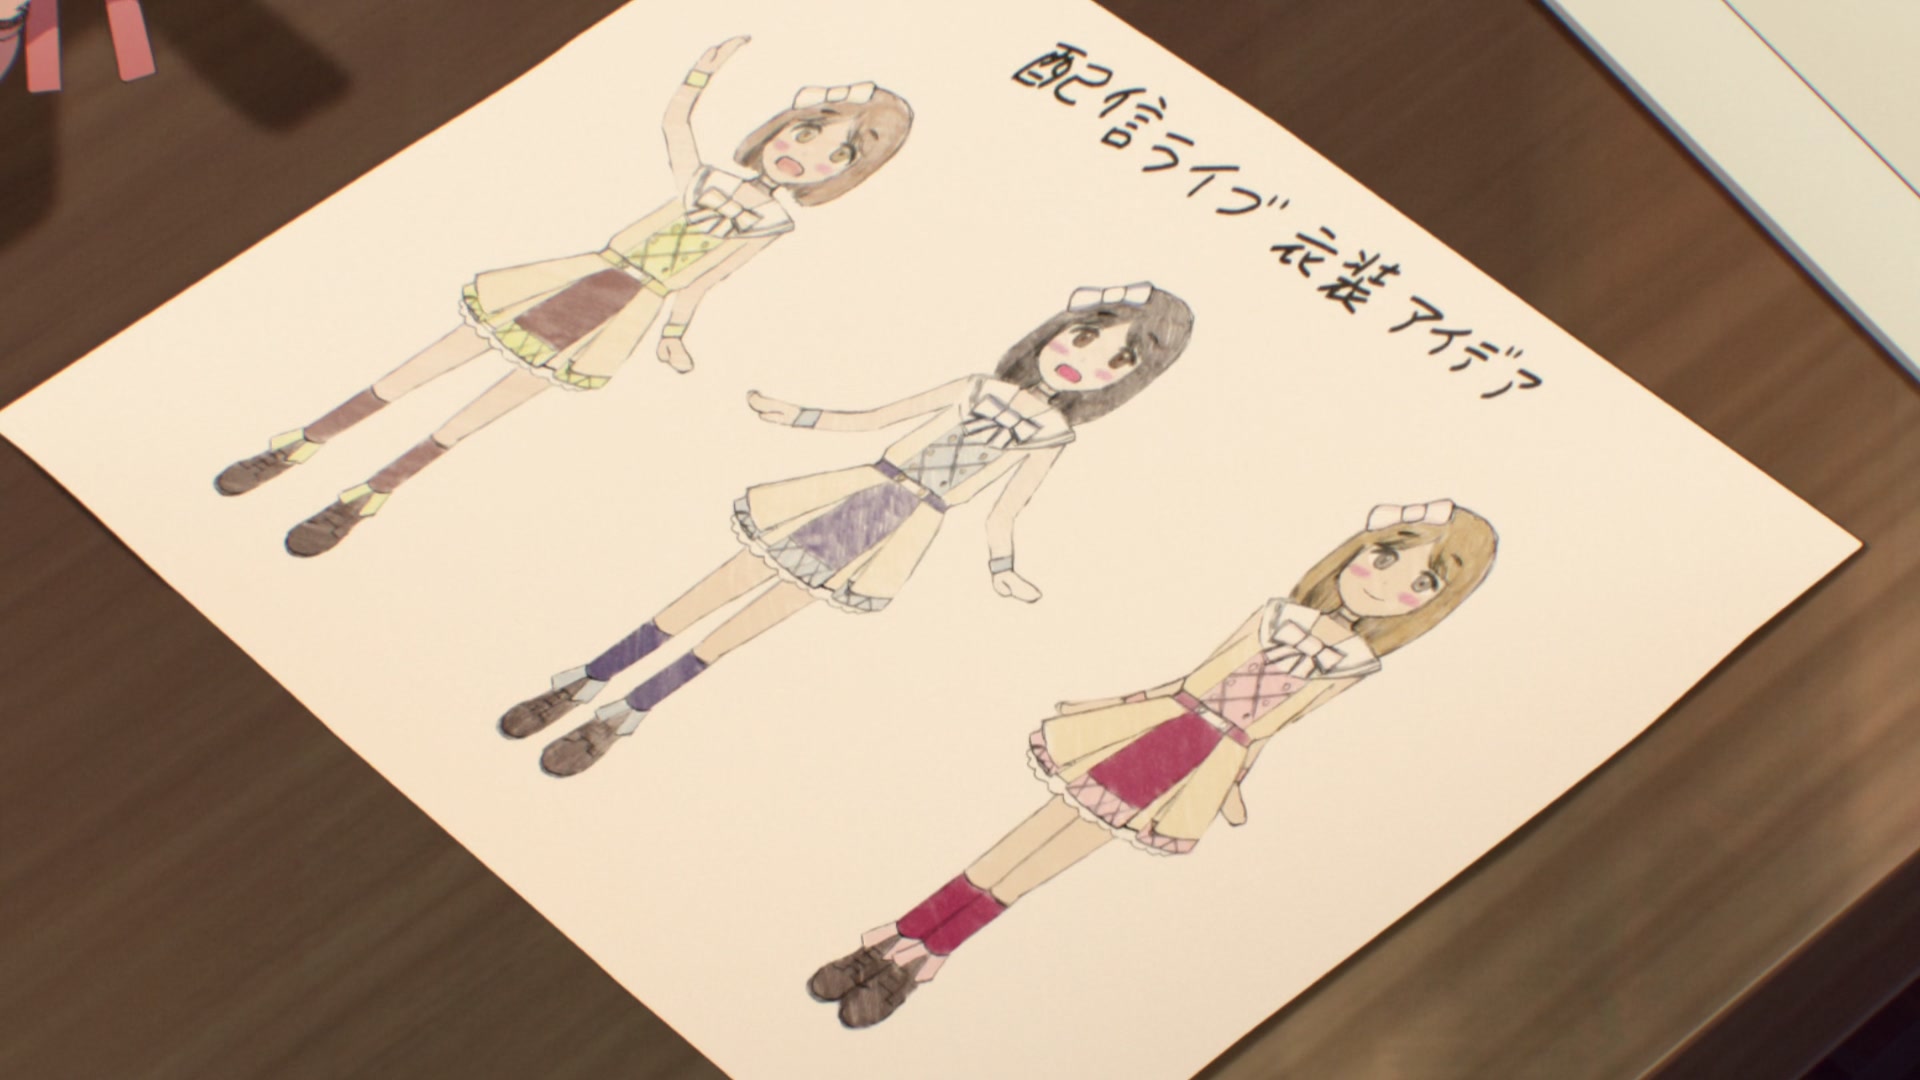 配信ライブ 衣装 アイデア